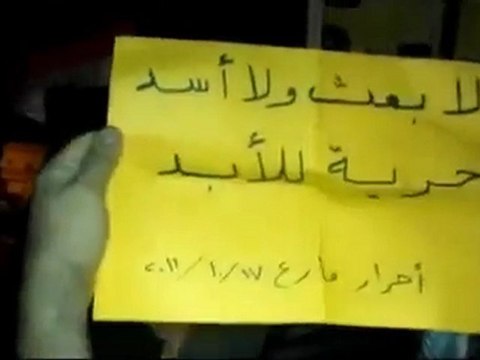 لا بعث ولا أسد
حرية للأبد
أحرار مارع ٢٠١١/١٠/١٧